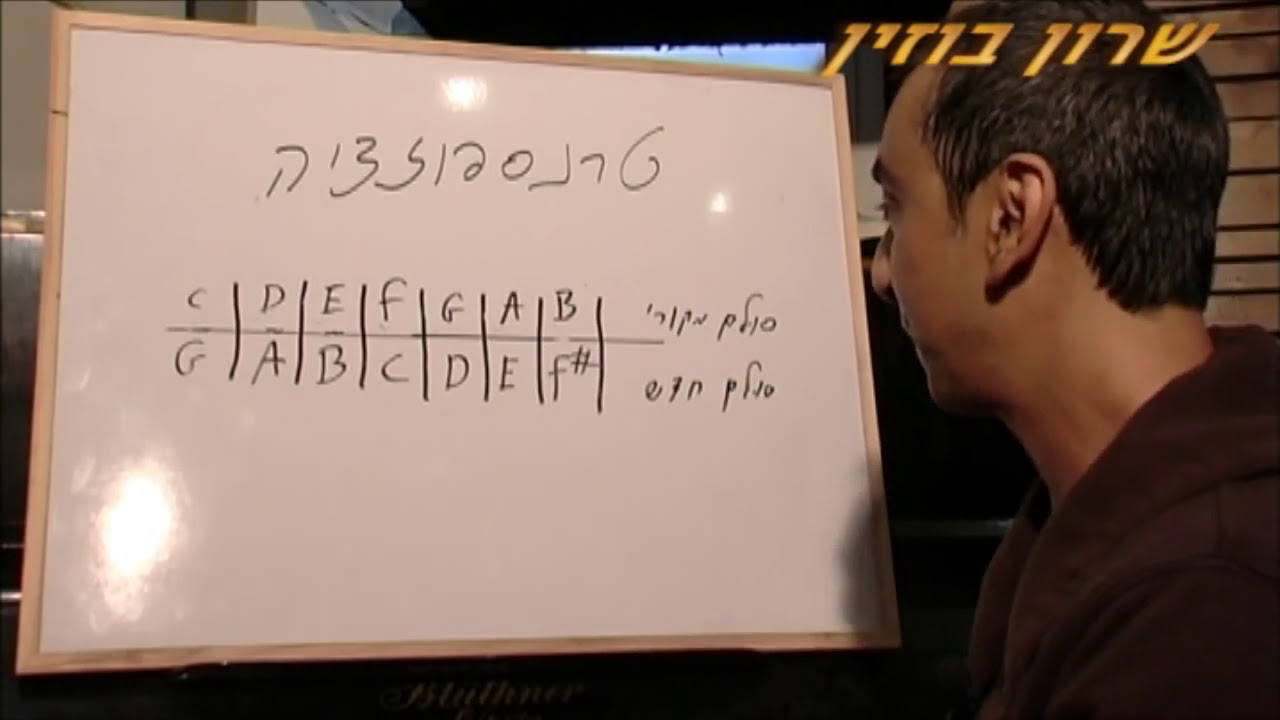 שרון בוזין
טרנספוזציה
C | D | E | F | G | A | B | סולם מקורי
G | A | B | C | D | E | F# | סולם חדש
Blüthner